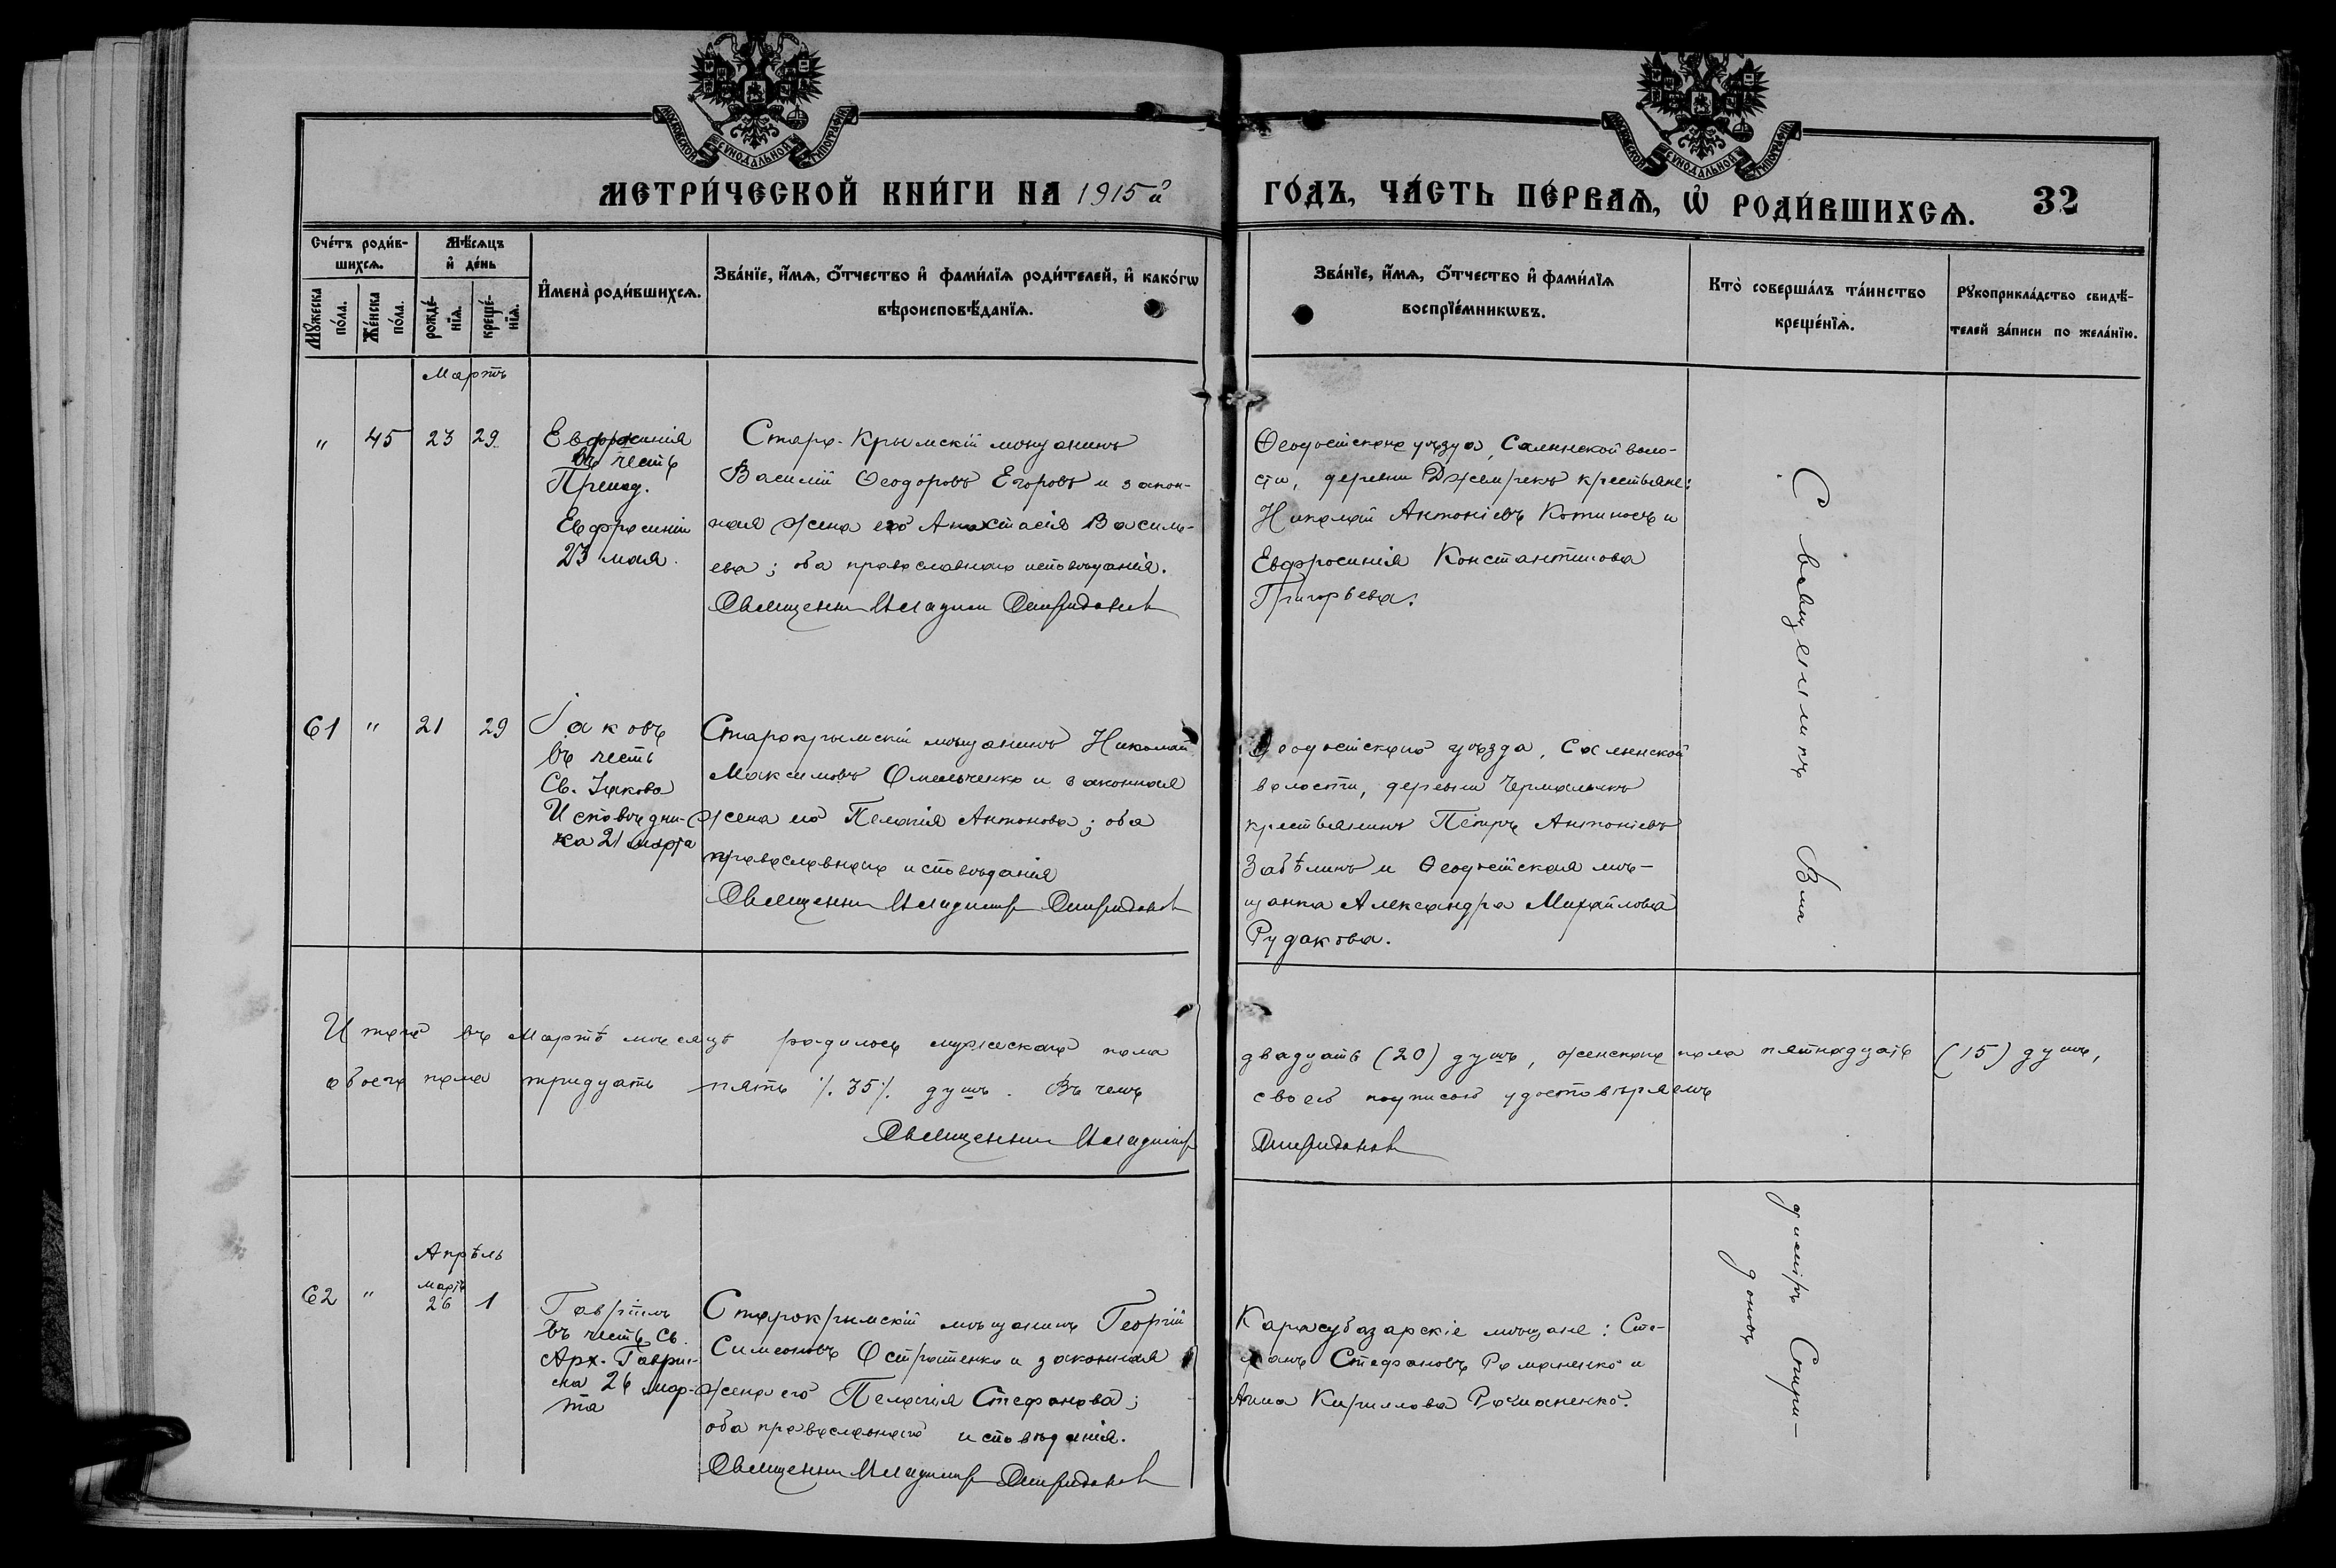 МОСКОВСКОЙ СѴНОДАЛЬНОЙ ТИПОГРАФІИ
МОСКОВСКОЙ СѴНОДАЛЬНОЙ ТИПОГРАФІИ
МЕТРИ́ЧЕСКОЙ КНИ́ГИ НА 1915й ГО́ДЪ, ЧА́СТЬ ПЕ́РВАѦ, Ѡ҆ РОДИ́ВШИХСѦ. 32
Сче́тъ роди́в-
шихсѧ.
Мꙋ́жеска
по́ла.
Же́нска
по́ла.
Мѣ́сѧцъ
и҆ де́нь
рожде́-
нїѧ.
креще́-
нїѧ.
И҆мена̀ роди́вшихсѧ.
Зва́нїе, и҆́мѧ, ѻ҆́тчество и҆ фами́лїѧ роди́телей, и҆ како́гѡ
вѣроисповѣ́данїѧ.
Зва́нїе, и҆́мѧ, ѻ҆́тчество и҆ фами́лїѧ
воспрїе́мникѡвъ.
Кто̀ соверша́лъ та́инство
креще́нїѧ.
Рꙋкоприкла́дство свидѣ́-
телей за́писи по жела́нїю.
Мартъ
" 45 23 29
Евфросинія
въ честь
Препод.
Евфросиніи
23 мая.
Старо-Крымскій мѣщанинъ
Василій Ѳеодоровъ Егоровъ и закон-
ная жена его Анастасія Василь-
ева; оба православнаго исповѣданія.
Священникъ Владиміръ Спиридоновъ
Ѳеодосійскаго уѣзда, Салынской воло-
сти, деревни Джемрекъ крестьяне:
Николай Антоніевъ Котиновъ и
Евфросинія Константинова
Григорьева.
61 " 21 29
Іаковъ
въ честь
Св. Іакова
Исповѣдни-
ка 21 марта
Старокрымскій мѣщанинъ Николай
Максимовъ Омельченко и законная
жена его Пелагія Антонова; оба
православнаго исповѣданія
Священникъ Владиміръ Спиридоновъ
Ѳеодосійскаго уѣзда, Салынской
волости, деревни Чермалыкъ
крестьянинъ Петръ Антоніевъ
Забѣлинъ и Ѳеодосійская мѣ-
щанка Александра Михайлова
Рудакова.
Итого въ Мартѣ мѣсяцѣ родилось мужескаго пола двадцать (20) душъ, женскаго пола пятнадцать (15) душъ,
обоего пола тридцать пять ٪ 35 ٪ душъ. Въ чемъ своею подписью удостовѣряемъ
Священникъ Владиміръ Спиридоновъ
Апрѣль
62 " мартъ 26 1
Гавріилъ
въ честь Св.
Арх. Гаврии-
ла 26 мар-
та
Старокрымскій мѣщанинъ Георгій
Симеоновъ Остратенко и законная
жена его Пелагія Стефанова;
оба православнаго исповѣданія.
Священникъ Владиміръ Спиридоновъ
Карасубазарскіе мѣщане: Сте-
фанъ Стефановъ Романенко и
Анна Кириллова Романенко.
Священникъ Вла
диміръ Спири-
доновъ